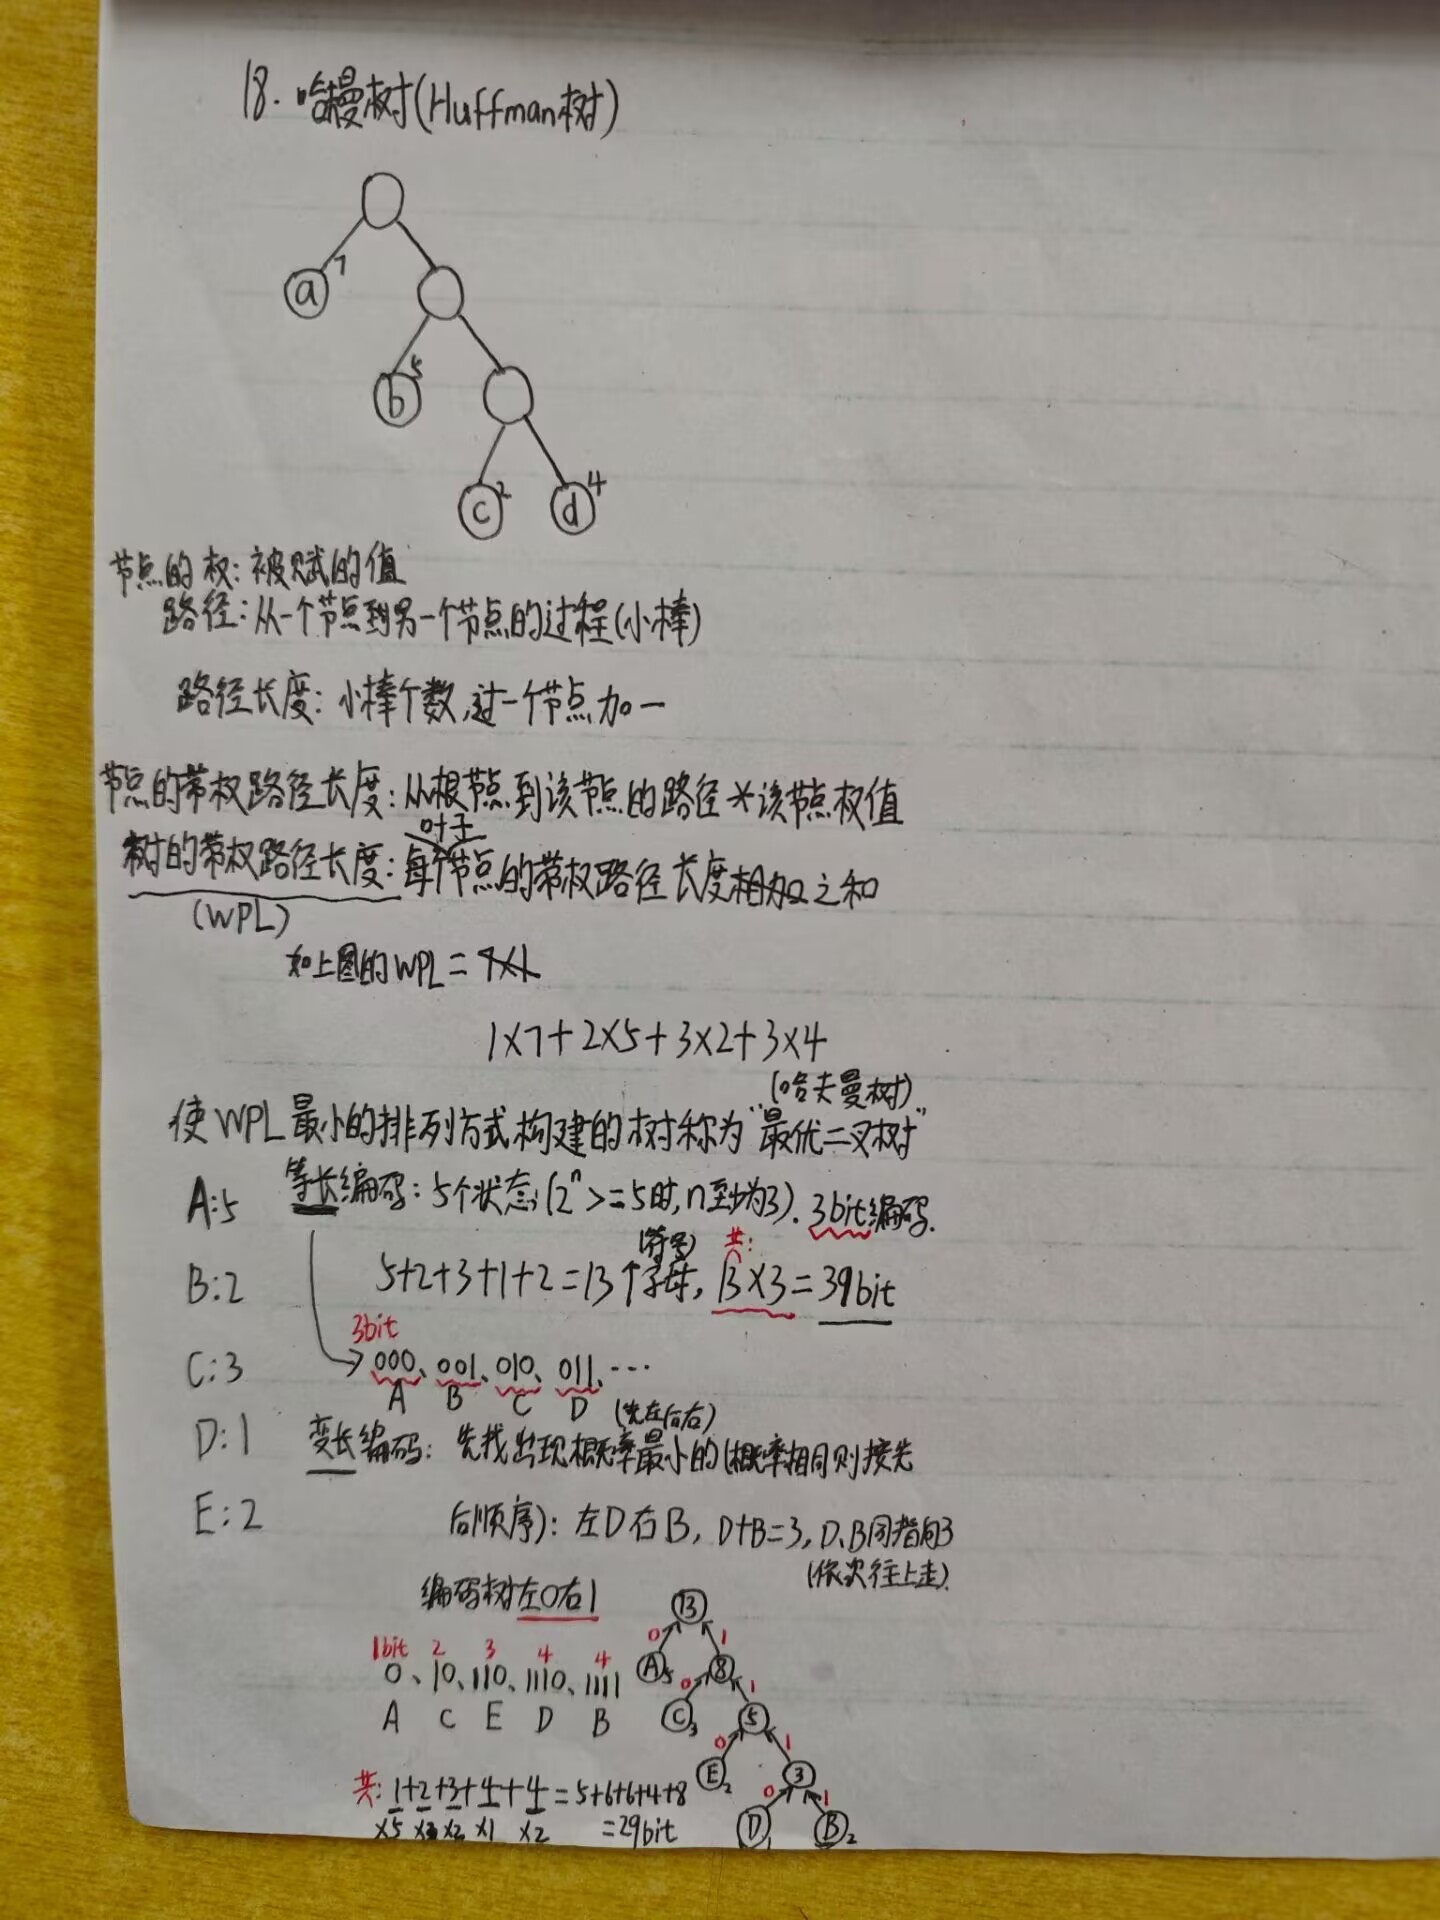 18. 哈曼树(Huffman树)
a 7
b 5
c 2 d 4
节点的权: 被赋的值
路径: 从一个节点到另一个节点的过程(小棒)
路径长度: 小棒个数,过一个节点加一
节点的带权路径长度: 从根节点到该节点的路径*该节点权值
叶子
树的带权路径长度: 每个节点的带权路径长度相加之和
(WPL)
如上图的WPL=
1×7+2×5+3×2+3×4
(哈夫曼树)
使WPL最小的排列方式构建的树称为"最优二叉树"
A:5 等长编码: 5个状态(2ⁿ>=5时,n至少为3). 3bit编码.
(符号) 共:
B:2 5+2+3+1+2=13个字母, 13×3=39bit
3bit
C:3 000、001、010、011、…
A B C D (先左后右)
D:1 变长编码: 先找出现概率最小的(概率相同则按先
E:2 后顺序): 左D右B, D+B=3, D、B同指向3
(依次往上走).
编码树左0右1
1bit 2 3 4 4
0、10、110、1110、1111
A C E D B
共: 1+2+3+4+4=5+6+6+4+8
×5 ×3 ×2 ×1 ×2 =29bit
13
0 1
A5 8
0 1
C3 5
0 1
E2 3
0 1
D1 B2